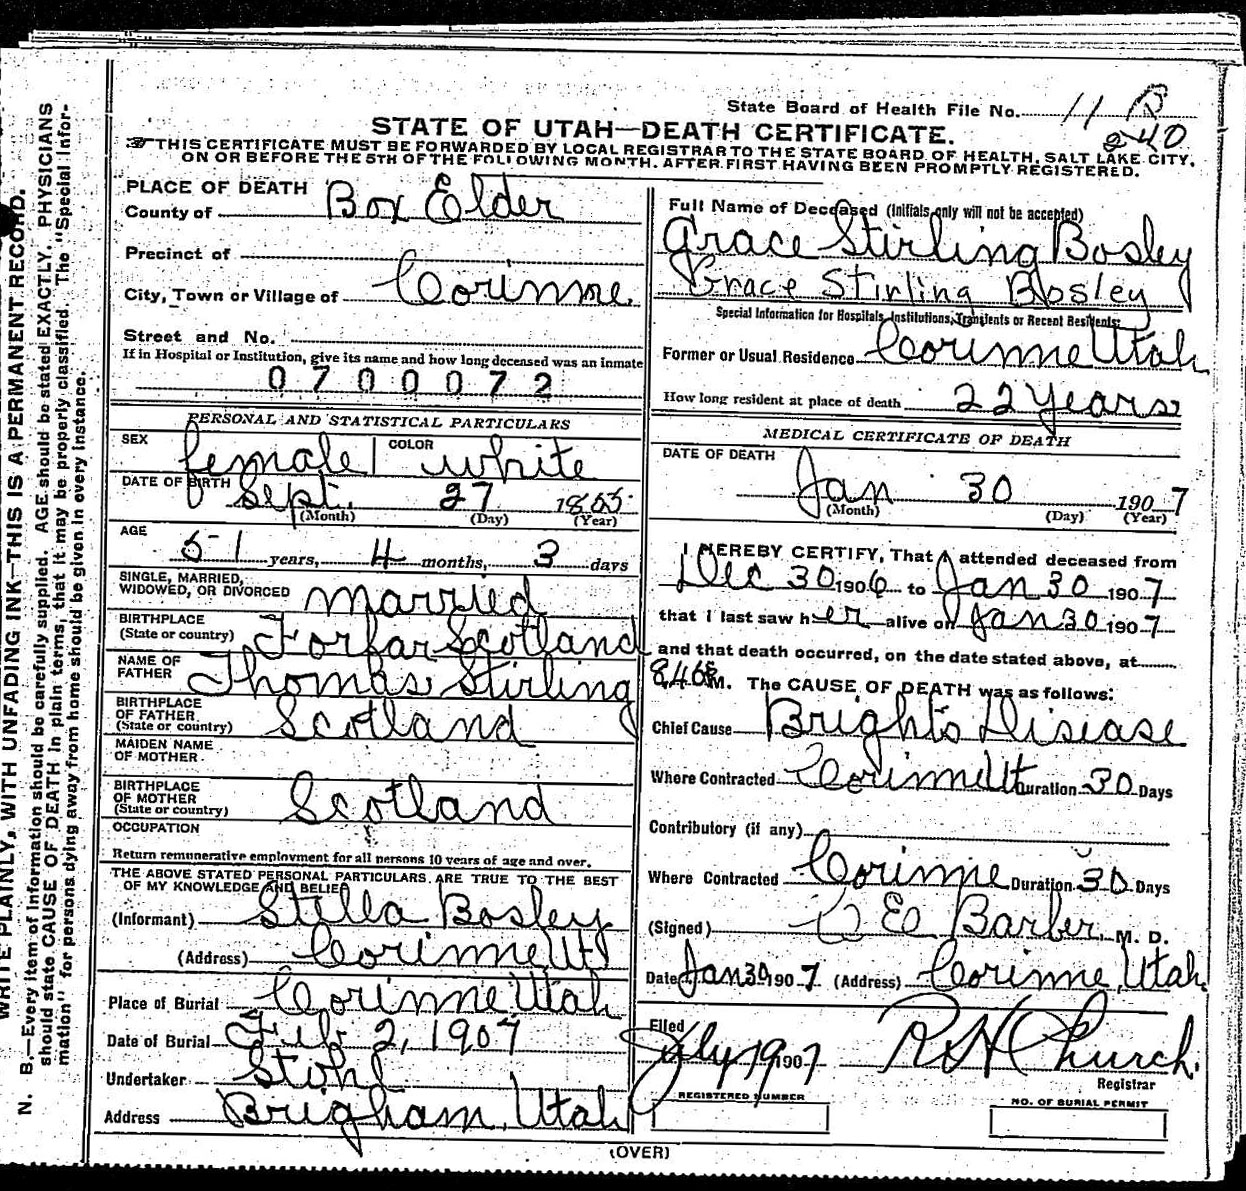 State Board of Health File No. 11 R
240
STATE OF UTAH—DEATH CERTIFICATE.
THIS CERTIFICATE MUST BE FORWARDED BY LOCAL REGISTRAR TO THE STATE BOARD OF HEALTH, SALT LAKE CITY,
ON OR BEFORE THE 5TH OF THE FOLLOWING MONTH. AFTER FIRST HAVING BEEN PROMPTLY REGISTERED.
PLACE OF DEATH
County of Box Elder
Precinct of
City, Town or Village of Corinne
Street and No.
If in Hospital or Institution, give its name and how long deceased was an inmate
0 7 0 0 0 7 2
PERSONAL AND STATISTICAL PARTICULARS
SEX female COLOR white
DATE OF BIRTH Sept. 27 1855
(Month) (Day) (Year)
AGE 51 years, 4 months, 3 days
SINGLE, MARRIED,
WIDOWED, OR DIVORCED married
BIRTHPLACE
(State or country) Forfar Scotland
NAME OF
FATHER Thomas Stirling
BIRTHPLACE
OF FATHER
(State or country) Scotland
MAIDEN NAME
OF MOTHER
BIRTHPLACE
OF MOTHER
(State or country) Scotland
OCCUPATION
Return remunerative employment for all persons 10 years of age and over.
THE ABOVE STATED PERSONAL PARTICULARS ARE TRUE TO THE BEST
OF MY KNOWLEDGE AND BELIEF
(Informant) Stella Bosley
(Address) Corinne Ut
Place of Burial Corinne Utah
Date of Burial Feb 2, 1907
Undertaker Stohl
Address Brigham, Utah
Full Name of Deceased (Initials only will not be accepted)
Grace Stirling Bosley
Grace Stirling Bosley
Special Information for Hospitals, Institutions, Transients or Recent Residents:
Former or Usual Residence Corinne Utah
How long resident at place of death 22 Years
MEDICAL CERTIFICATE OF DEATH
DATE OF DEATH
Jan 30 1907
(Month) (Day) (Year)
I HEREBY CERTIFY, That I attended deceased from
Dec 30 1906 to Jan 30 1907
that I last saw her alive on Jan 30 1907
and that death occurred, on the date stated above, at
M. The CAUSE OF DEATH was as follows:
Chief Cause Brights Disease
Where Contracted Corinne Ut Duration 30 Days
Contributory (if any)
Where Contracted Corinne Duration 30 Days
(Signed) Barber, M. D.
Date Jan 30 1907 (Address) Corinne, Utah.
Filed
1907 R H Church.
Registrar
REGISTERED NUMBER
NO. OF BURIAL PERMIT
(OVER)
WRITE PLAINLY, WITH UNFADING INK—THIS IS A PERMANENT RECORD.
N. B.—Every item of information should be carefully supplied. AGE should be stated EXACTLY. PHYSICIANS
should state CAUSE OF DEATH in plain terms, that it may be properly classified. The "Special Infor-
mation" for persons dying away from home should be given in every instance.